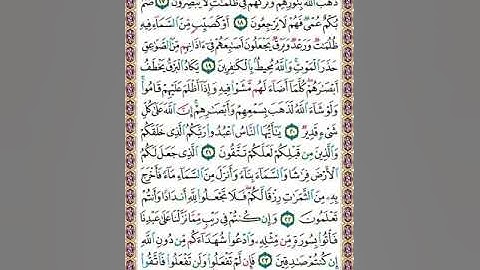 ذَهَبَ اللَّهُ بِنُورِهِمْ وَتَرَكَهُمْ فِي ظُلُمَاتٍ لَا يُبْصِرُونَ ١٧ صُمٌّ
بُكْمٌ عُمْيٌ فَهُمْ لَا يَرْجِعُونَ ١٨ أَوْ كَصَيِّبٍ مِنَ السَّمَاءِ فِيهِ
ظُلُمَاتٌ وَرَعْدٌ وَبَرْقٌ يَجْعَلُونَ أَصَابِعَهُمْ فِي آذَانِهِمْ مِنَ الصَّوَاعِقِ
حَذَرَ الْمَوْتِ وَاللَّهُ مُحِيطٌ بِالْكَافِرِينَ ١٩ يَكَادُ الْبَرْقُ يَخْطَفُ
أَبْصَارَهُمْ كُلَّمَا أَضَاءَ لَهُمْ مَشَوْا فِيهِ وَإِذَا أَظْلَمَ عَلَيْهِمْ قَامُوا
وَلَوْ شَاءَ اللَّهُ لَذَهَبَ بِسَمْعِهِمْ وَأَبْصَارِهِمْ إِنَّ اللَّهَ عَلَى كُلِّ
شَيْءٍ قَدِيرٌ ٢٠ يَاأَيُّهَا النَّاسُ اعْبُدُوا رَبَّكُمُ الَّذِي خَلَقَكُمْ
وَالَّذِينَ مِنْ قَبْلِكُمْ لَعَلَّكُمْ تَتَّقُونَ ٢١ الَّذِي جَعَلَ لَكُمُ
الْأَرْضَ فِرَاشًا وَالسَّمَاءَ بِنَاءً وَأَنْزَلَ مِنَ السَّمَاءِ مَاءً فَأَخْرَجَ
بِهِ مِنَ الثَّمَرَاتِ رِزْقًا لَكُمْ فَلَا تَجْعَلُوا لِلَّهِ أَنْدَادًا وَأَنْتُمْ
تَعْلَمُونَ ٢٢ وَإِنْ كُنْتُمْ فِي رَيْبٍ مِمَّا نَزَّلْنَا عَلَى عَبْدِنَا
فَأْتُوا بِسُورَةٍ مِنْ مِثْلِهِ وَادْعُوا شُهَدَاءَكُمْ مِنْ دُونِ اللَّهِ
إِنْ كُنْتُمْ صَادِقِينَ ٢٣ فَإِنْ لَمْ تَفْعَلُوا وَلَنْ تَفْعَلُوا فَاتَّقُوا